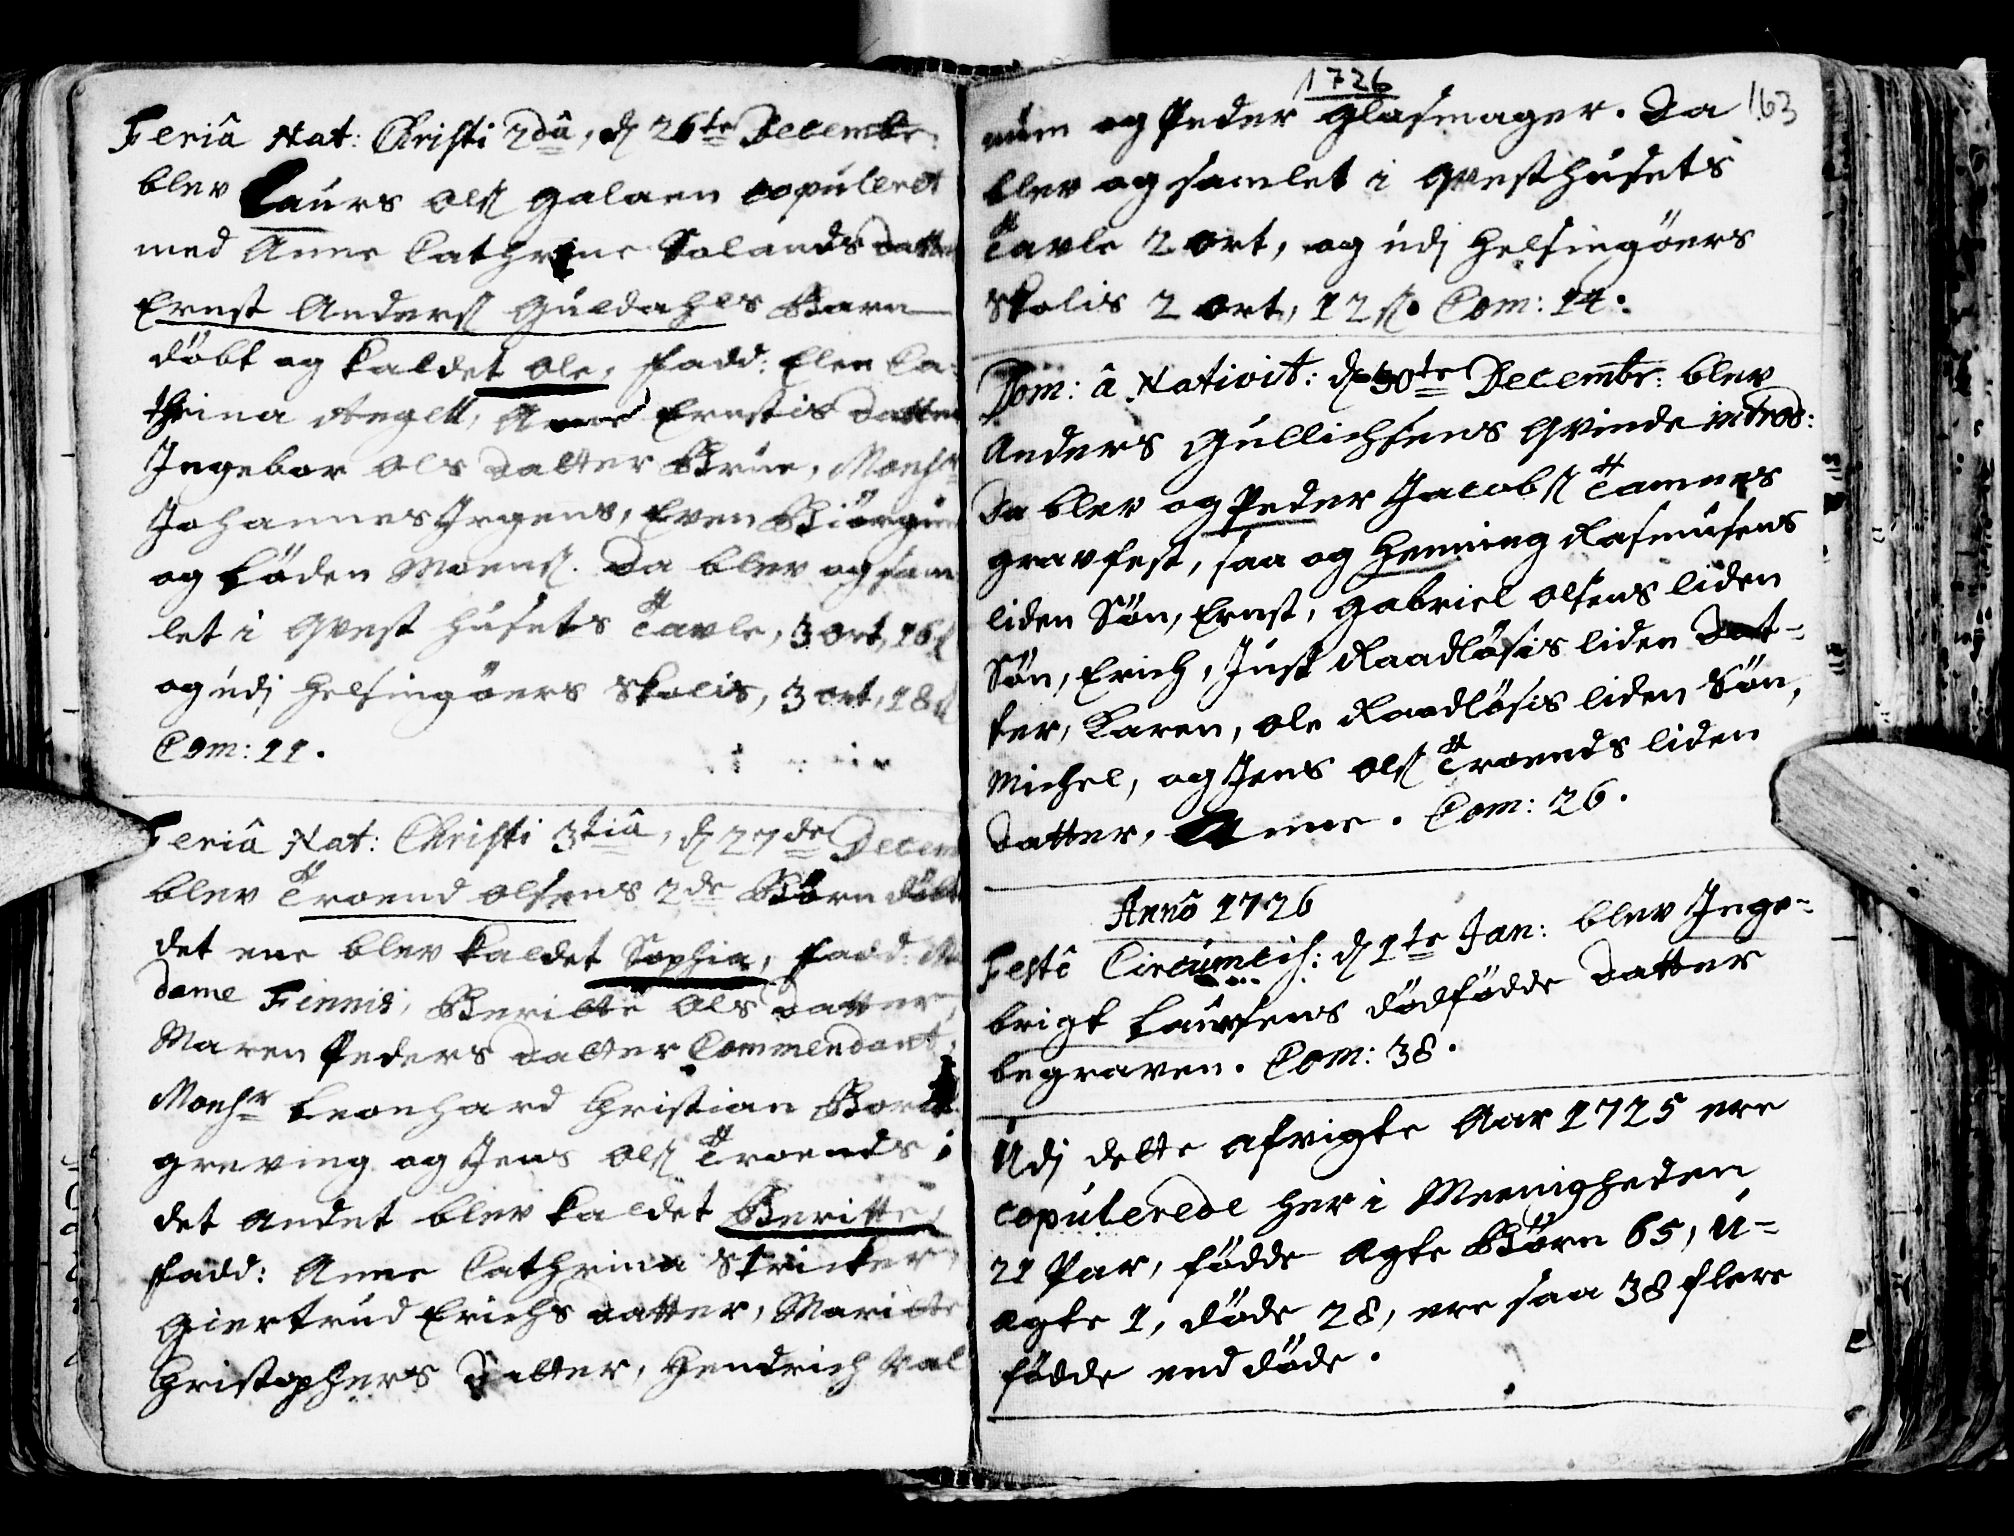 Feriâ Nat: Christi 2dâ, d 26te Decembr:
blev Laurs Ols Galaen copuleret
med Anne Cathrine Volands datter
Ernst Anders Guldahls Barn
döbt og kaldet Ole, fadd: Elen Ca-
thrina Angell, Anne Ernstis datter
Ingebor Ols datter Brun, Monsr
Johannes Irgens, Even Biörgen
og Löden Moens. Da blev og sam
let i Qvesthusets Tavle, 3 ort, 16 s
og udj Helsingöers Skolis, 3 ort, 18 s
Com: 11.
Feriâ Nat: Christi 3tiâ, d 27de Decem
blev Troend Olsens 2de Börn döbt
det ene blev kaldet Sophia, fadd: Ma
dame Finnis, Beritte Ols datter,
Maren Peders datter Commendant,
Monsr Leonhard Christian Borch
greving og Jens Ols Troends;
det andet blev kaldet Beritte,
fadd: Anne Cathrina Stricker,
Giertrud Erichs datter, Maritte
Christophers Datter, Hendrich Val
1726
163
num og Peder Glasmager. Da
blev og samlet i Qvesthusets
Tavle 2 ort, og udj Helsingöers
Skolis 2 ort, 12 s. Com: 14.
Dom: â Nativit: d 30te Decembr: blev
Anders Gullichsens Qvinde introd:
Da blev og Peder Jacobs Tamnes
gravfest, saa og Henning Rasmusens
liden Sön, Ernst, Gabriel Olsens liden
Sön, Erich, Just Raadlösis liden Dat-
ter, Karen, Ole Raadlösis liden Sön,
Michel, og Jens Ols Troends liden
Datter, Anne. Com: 26.
Annô 1726
Festô Circumcis: d 1te Jan: blev Inge-
brigt Laursens dödfödde Datter
begraven. Com: 38.
Udj dette afvigte Aar 1725 ere
copulerede her i Meenigheden
21 Par, födde ægte Börn 65, U-
ægte 1, döde 28, ere saa 38 flere
födde end döde.